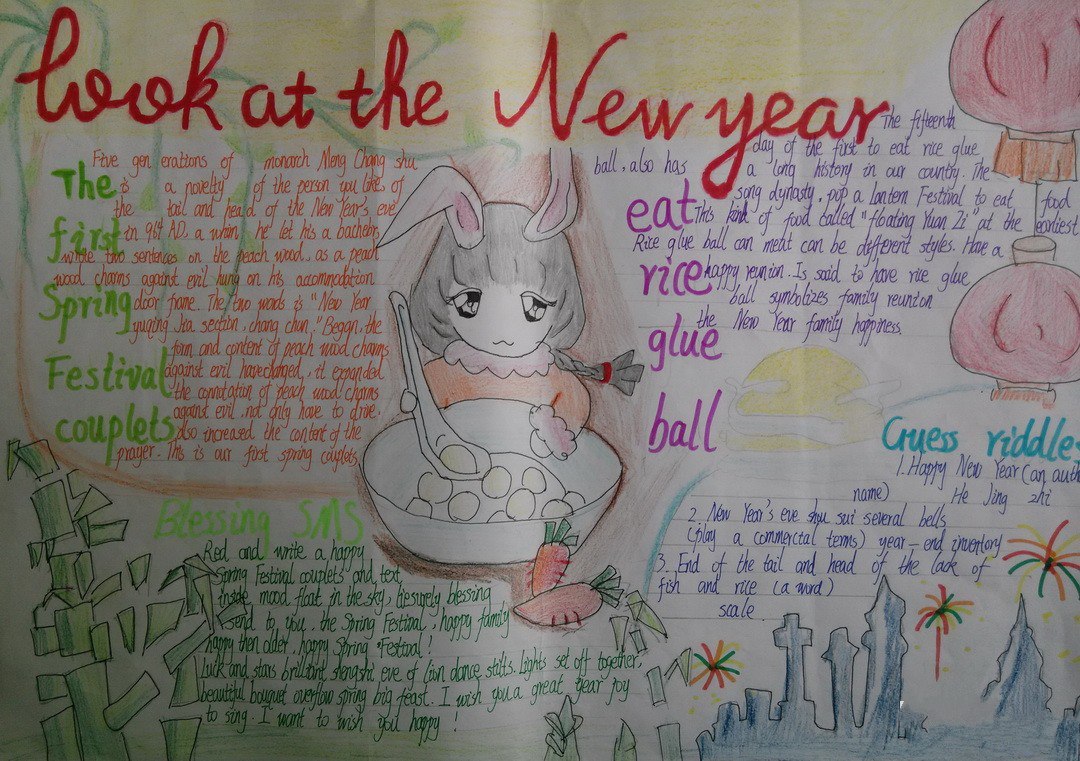 look at the New year
The first Spring Festival couplets
Five gen erations of monarch Meng Chang shu
is a novelty of the person you like, of
the tail and head of the New Year's eve
in 964 AD. a whim, he let his a bachelors
write two sentences on the peach wood. as a peach
wood charms against evil hung on his accommodation
door frame. The two words is "New Year
yuqing Jia section, chang chun." Began, the
form and content of peach wood charms
against evil have changed, it expanded
the connotation of peach wood charms
against evil, not only have to drive,
also increased the content of the
prayer. This is our first spring couplets
Blessing SMS
Red and write a happy
Spring Festival couplets and text,
inside mood float in the sky, liesurely blessing
send to you, the Spring Festival, happy family
happy then older, happy Spring Festival!
Luck and stars brilliant shengshi eve of lion dance stilts. Lights set off together,
beautiful bouquet overflow spring big feast. I wish you a great year joy
to sing. I want to wish you happy !
eat rice glue ball
The fifteenth
day of the first to eat rice glue
ball, also has a long history in our country. The
song dynasty, pop a lantern Festival to eat food
This kind of food called "floating Yuan Zi" at the earliest
Rice glue ball can meat can be different styles. Have a
happy reunion. Is said to have rice glue
ball symbolizes family reunion
the New Year family happiness
Guess riddles
1. Happy New Year (an auth
name) He Jing zhi
2. New Year's eve shou sui several bells
(play a commercial terms) year-end inventory
3. End of the tail and head of the lack of
fish and rice (a word)
scale